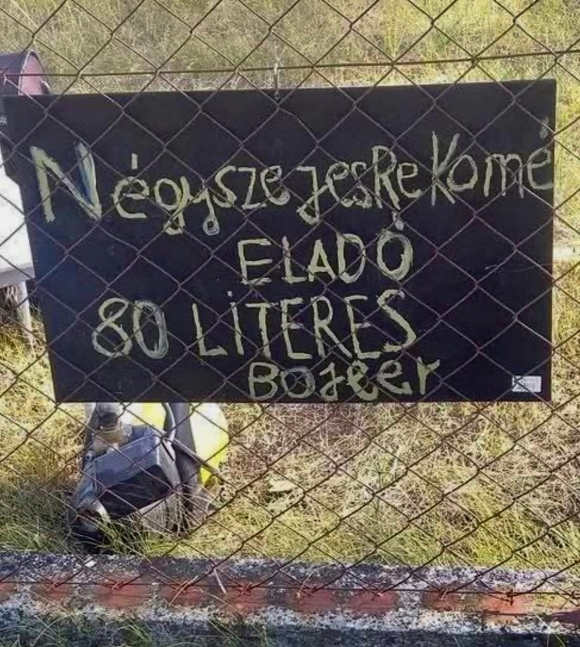 NégyszejesReKomé
ELADÓ
80 LiTERES
BOJeer